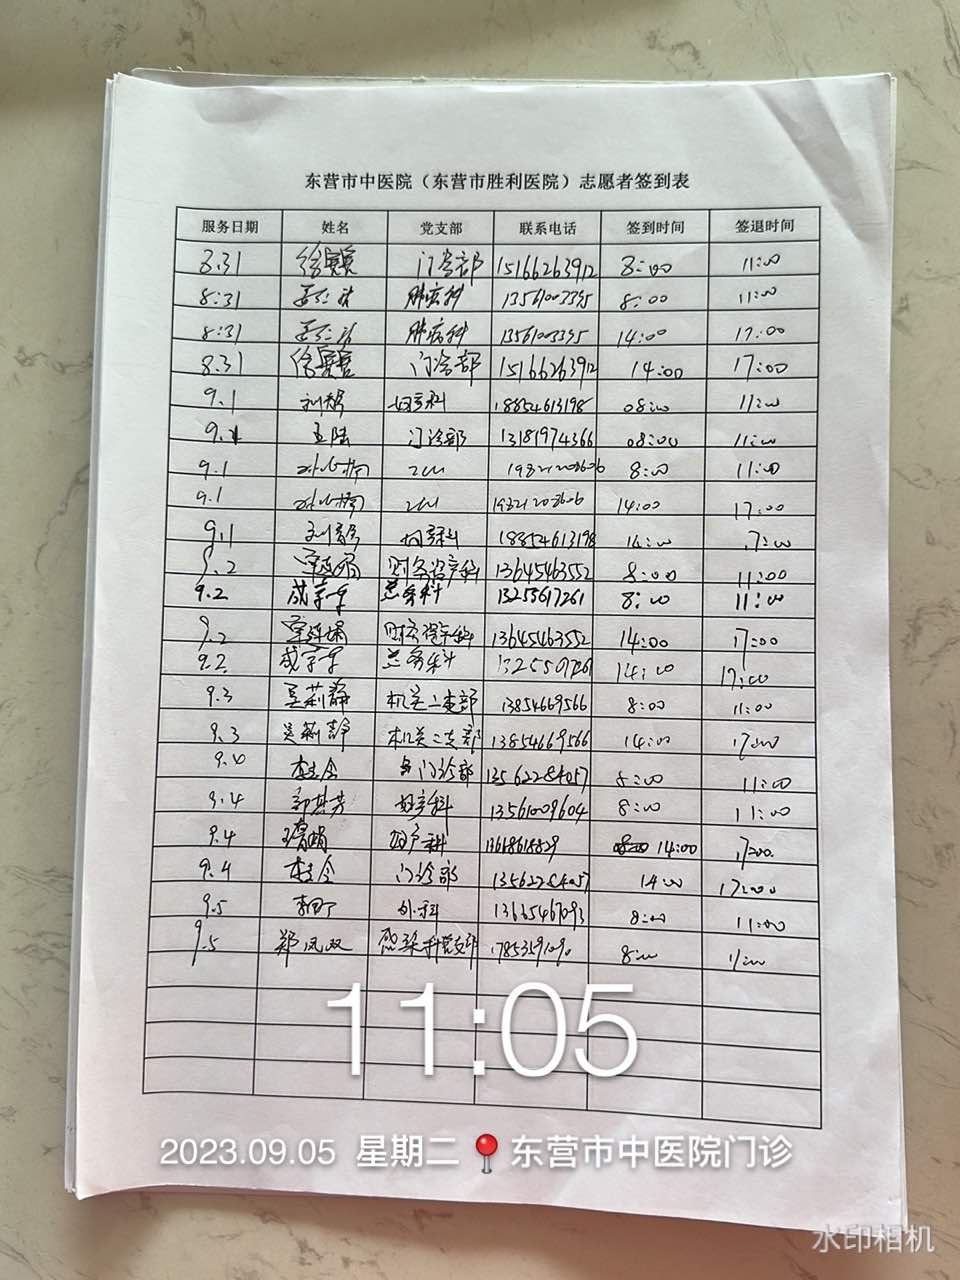 东营市中医院（东营市胜利医院）志愿者签到表
服务日期 姓名 党支部 联系电话 签到时间 签退时间
8.31 门诊部 15166263912 8:00 11:00
8:31 肿病科 13561003395 8:00 11:00
8:31 肿病科 13561003395 14:00 17:00
8.31 门诊部 15166263912 14:00 17:00
9.1 妇产科 18854613198 08:00 11:00
9.1 王陆 门诊部 13181974366 08:00 11:00
9.1 ICU 8:00 11:00
9.1 ICU 14:00 17:00
9.1 妇产科 18854613198 14:00 17:00
9.2 财务资产科 13645463552 8:00 11:00
9.2 总务科 13255617261 8:00 11:00
9.2 财务资产科 13645463552 14:00 17:00
9.2 总务科 14:00 17:00
9.3 吴莉静 机关二支部 13854669566 8:00 11:00
9.3 吴莉静 机关二支部 13854669566 14:00 17:00
9.4 门诊部 13562284057 8:00 11:00
9.4 妇产科 13561009604 8:00 11:00
9.4 妇产科 14:00 17:00
9.4 门诊部 13562284057 14:00 17:00
9.5 外科 13665467093 8:00 11:00
9.5 郑凤双 8:00 11:00
11:05
2023.09.05 星期二 东营市中医院门诊
水印相机